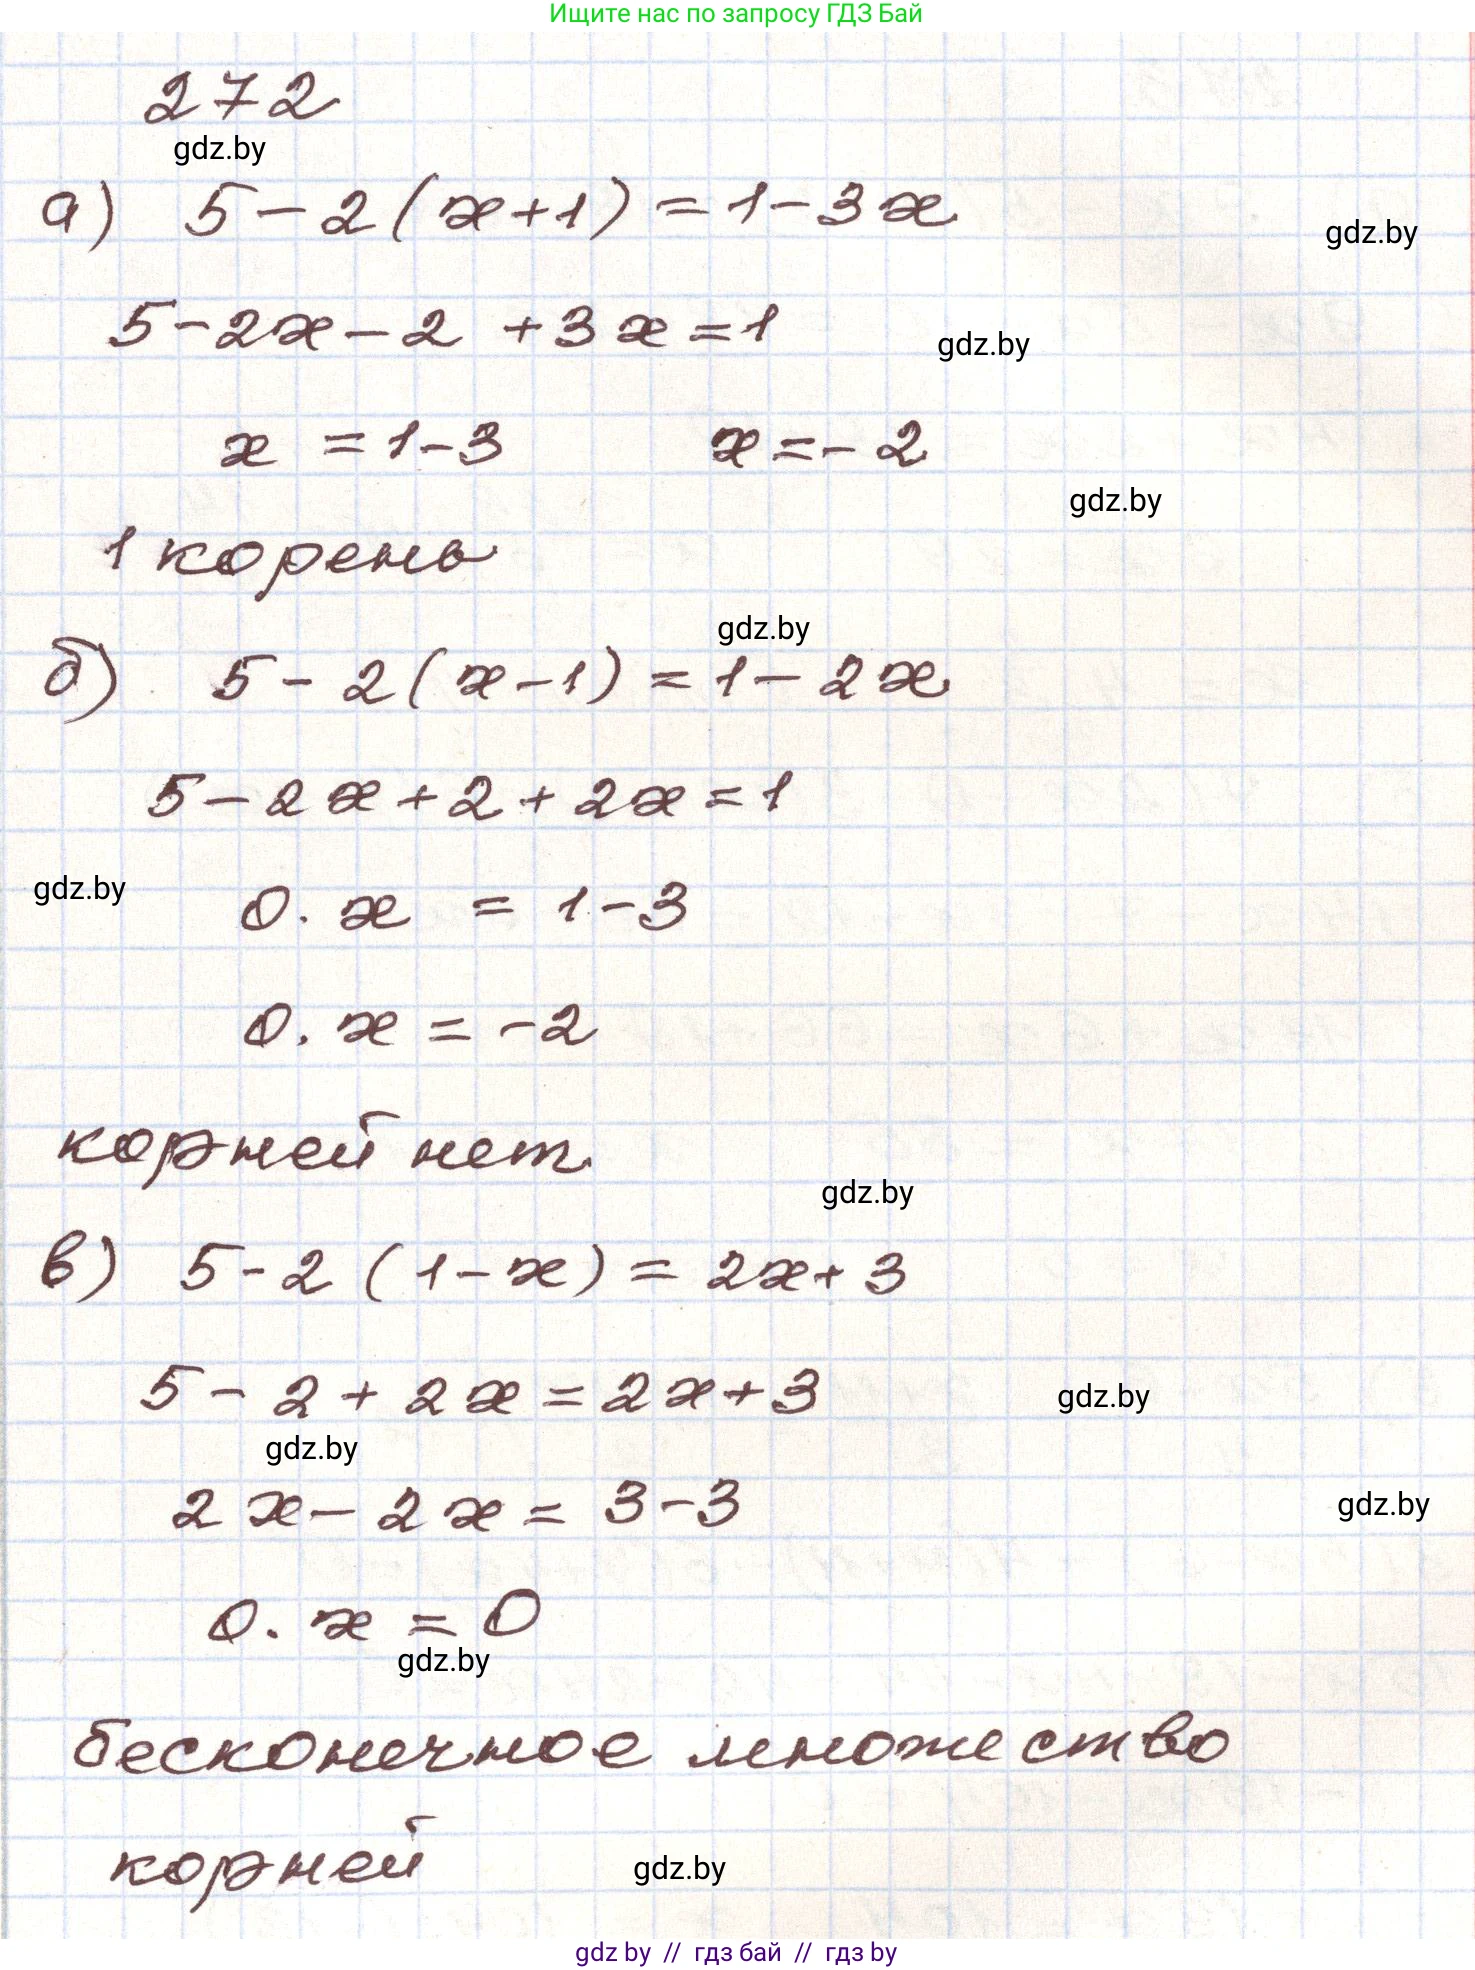 Ищите нас по запросу ГДЗ Бай
272
gdz.by
а) 5-2(x+1)=1-3x
gdz.by
5-2x-2 +3x=1
gdz.by
x =1-3 x=-2
gdz.by
1 корень
gdz.by
б) 5-2(x-1)=1-2x
5-2x+2+2x=1
gdz.by
0·x = 1-3
0·x = -2
корней нет.
gdz.by
в) 5-2(1-x)=2x+3
5-2+2x=2x+3
gdz.by
gdz.by
2x-2x=3-3
gdz.by
0·x=0
gdz.by
бесконечное множество
корней
gdz.by
gdz by // гдз бай // гдз by